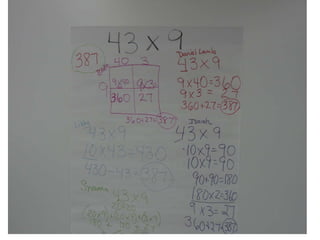 43 x 9
387
40 3
9x40 9x3
360 27
360+27=387
Daniel Lamb
43 x 9
9 x 40 = 360
9 x 3 = 27
360+27=387
Libby
43 x 9
10 x 43 = 430
430-43=387
Isaiah
43 x 9
10 x 9 = 90
10 x 9 = 90
90+90=180
180 x 2 = 360
9 x 3 = 27
360+27=387
43 x 9